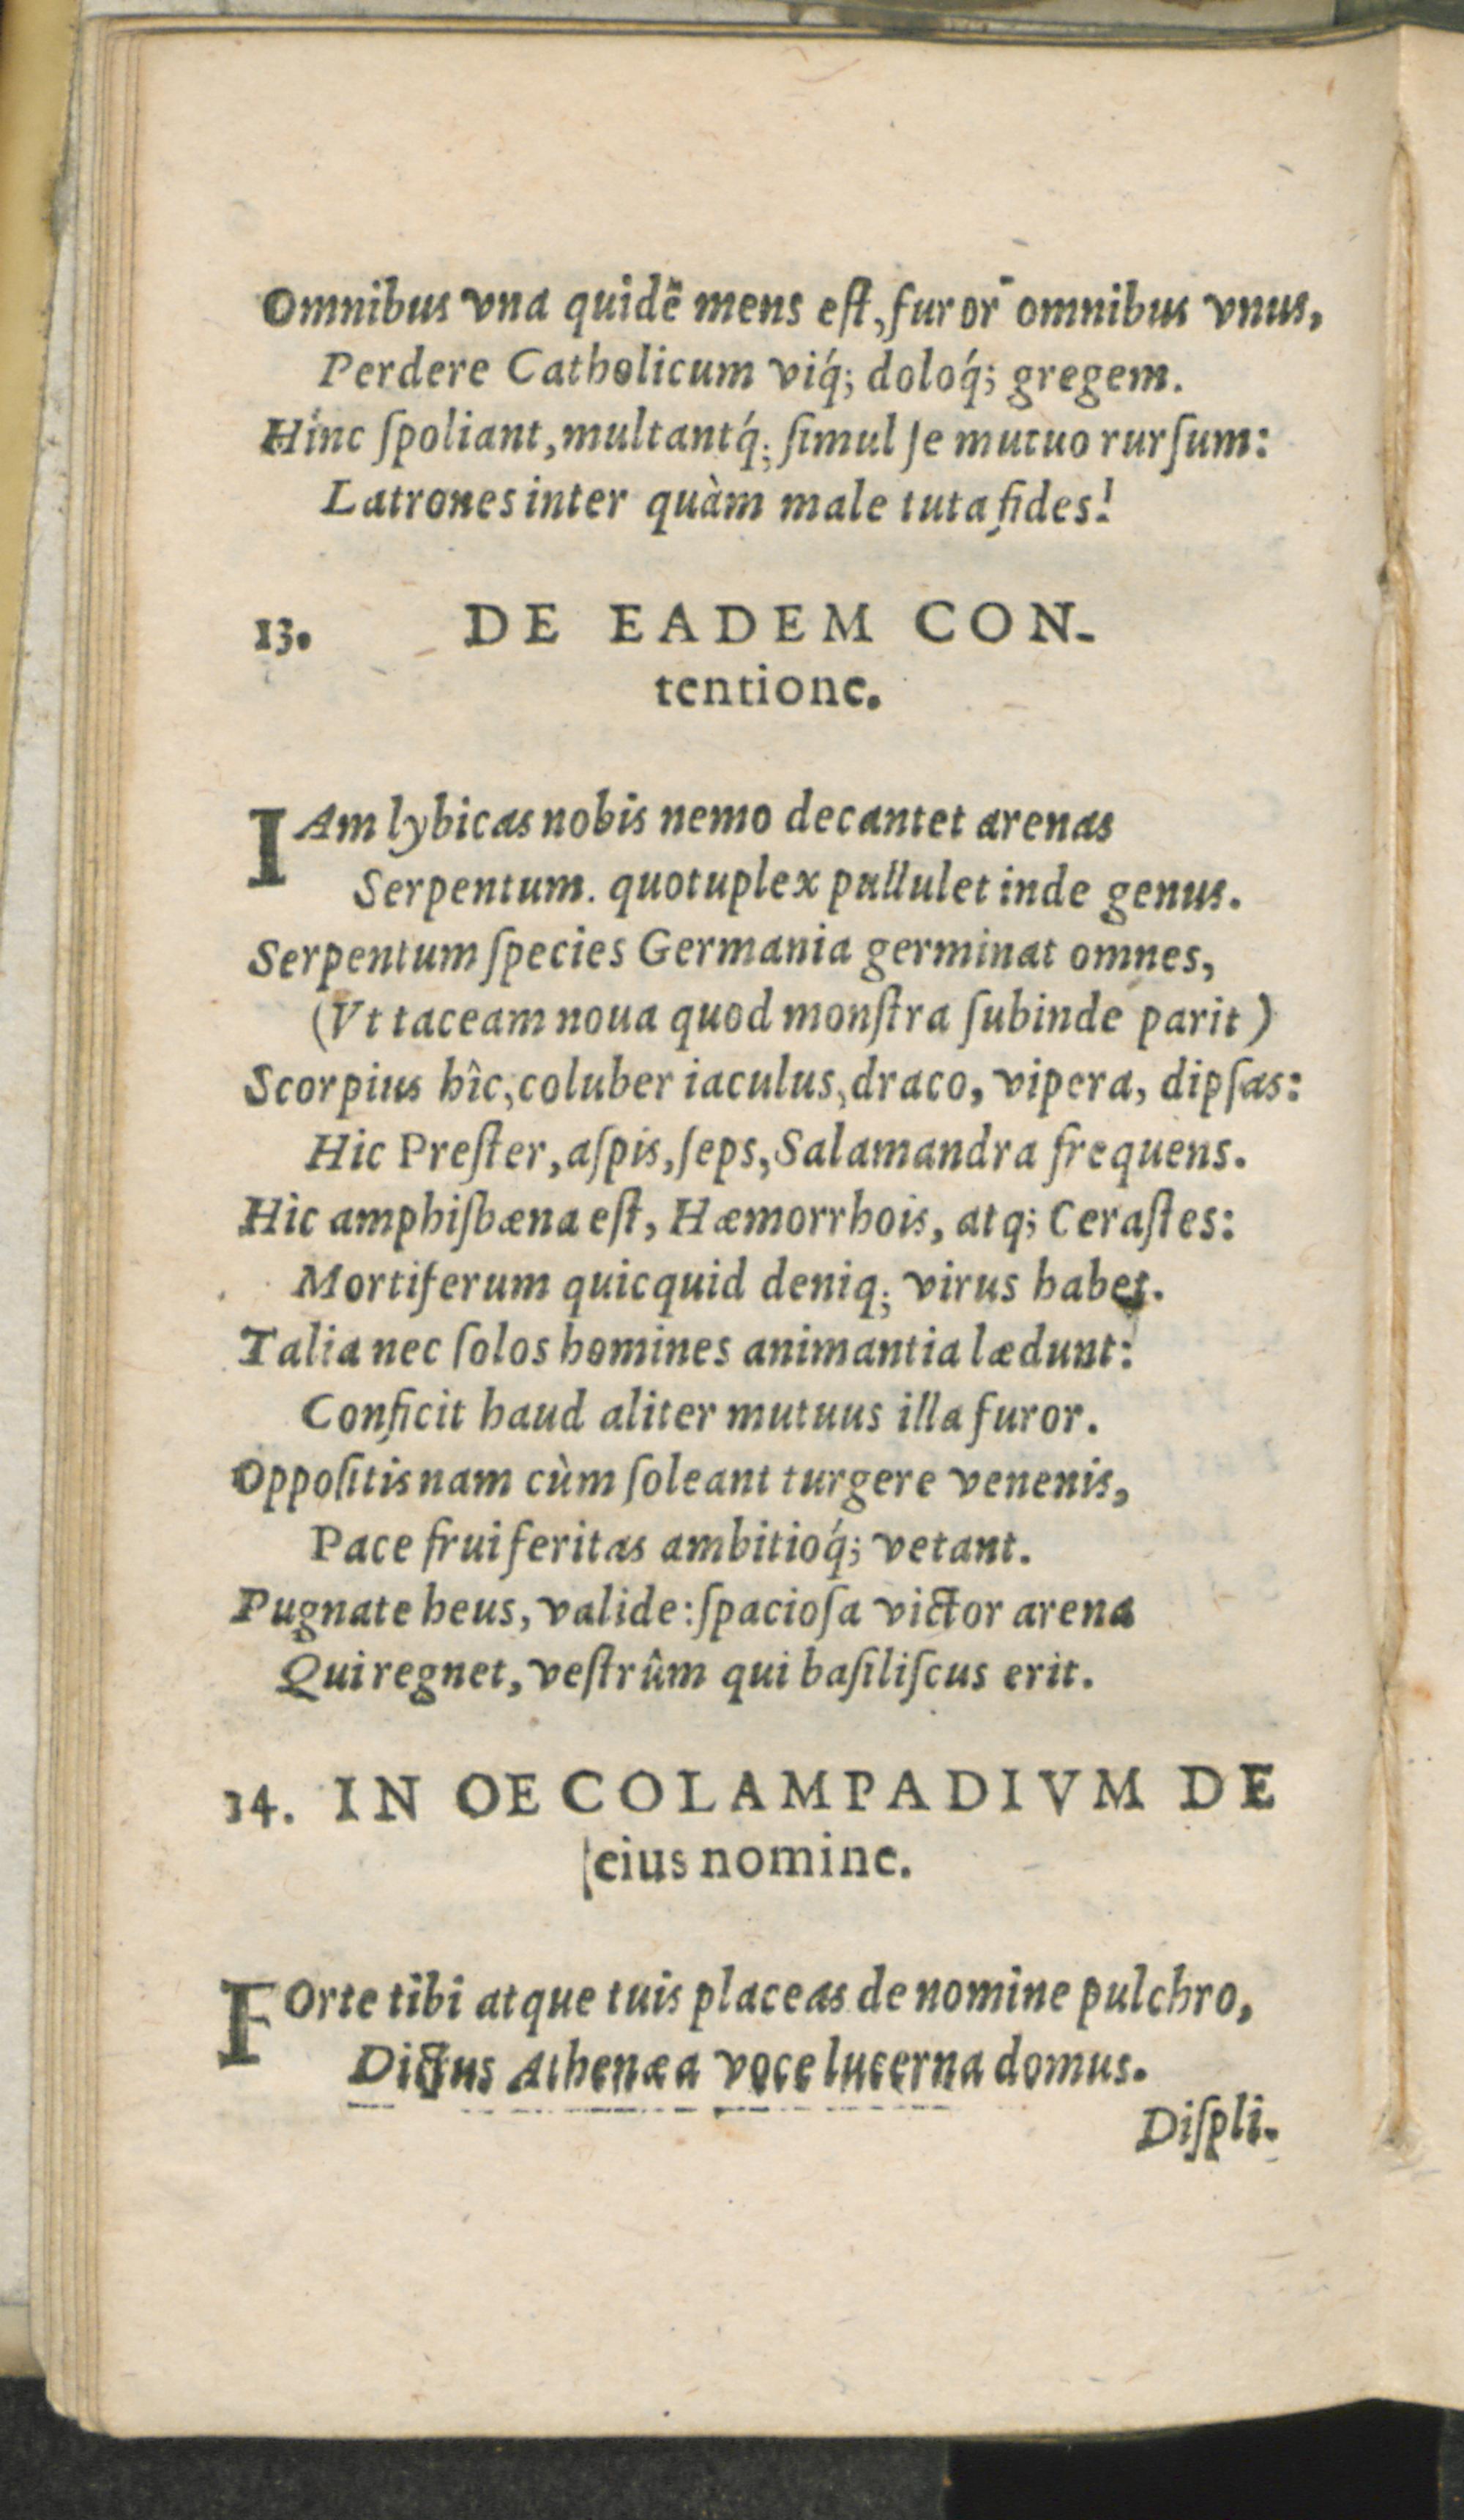 Omnibus vna quidē mens eſt, furor omnibus vnus,
Perdere Catholicum viq́; doloq́; gregem.
Hinc ſpoliant, multantq́; ſimul ſe mutuo rurſum:
Latrones inter quàm male tuta fides!
13. DE EADEM CON-
tentione.
IAm lybicas nobis nemo decantet arenas
Serpentum. quotuplex pullulet inde genus.
Serpentum ſpecies Germania germinat omnes,
(Vt taceam noua quod monſtra ſubinde parit)
Scorpius hîc, coluber iaculus, draco, vipera, dipſas:
Hic Preſter, aſpis, ſeps, Salamandra frequens.
Hic amphiſbæna eſt, Hæmorrhois, atq; Ceraſtes:
Mortiferum quicquid deniq; virus habet.
Talia nec ſolos homines animantia lædunt:
Conficit haud aliter mutuus illa furor.
Oppoſitis nam cùm ſoleant turgere venenis,
Pace frui feritas ambitioq́; vetant.
Pugnate heus, valide: ſpacioſa victor arena
Qui regnet, veſtrûm qui baſiliſcus erit.
14. IN OECOLAMPADIVM DE
eius nomine.
FOrte tibi atque tuis placeas de nomine pulchro,
Dictus Athenæa voce lucerna domus.
Diſpli-